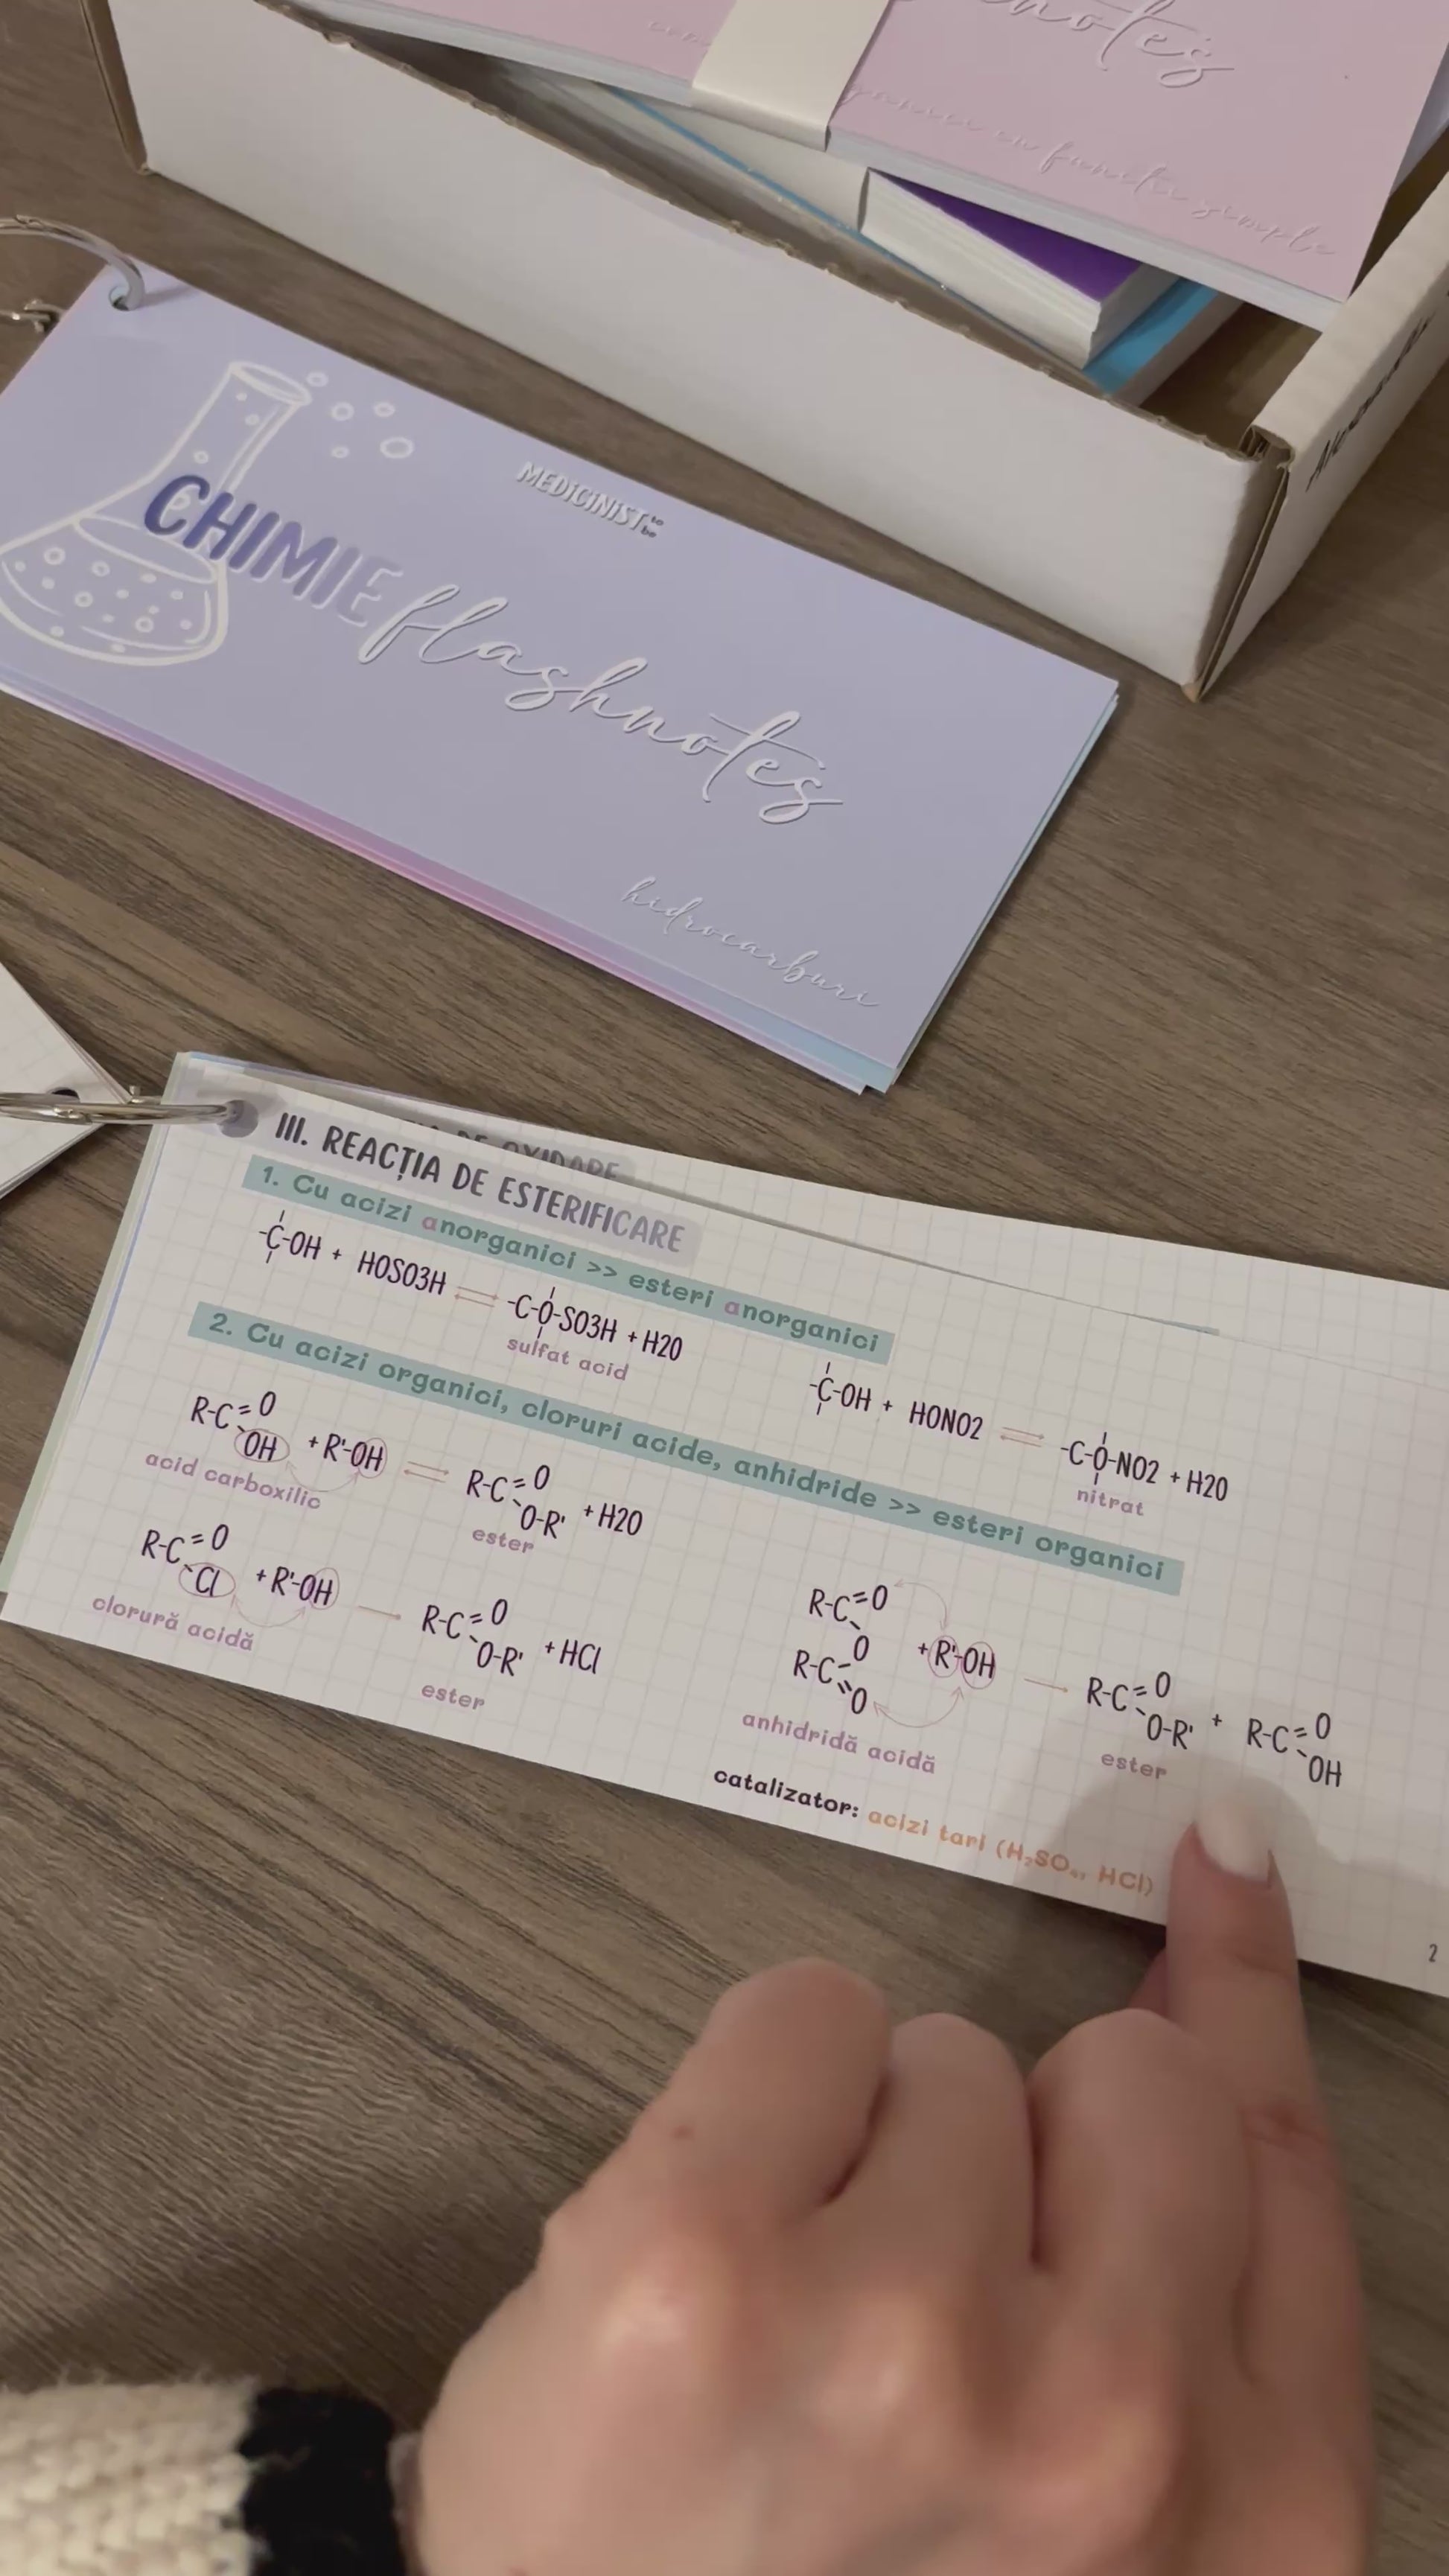 notes
funcții simple
MEDICINIST to be
CHIMIE flashnotes
hidrocarburi
DE OXIDARE
III. REACȚIA DE ESTERIFICARE
1. Cu acizi anorganici >> esteri anorganici
-C-OH + HOSO3H ⇌ -C-O-SO3H + H2O
sulfat acid
-C-OH + HONO2 ⇌ -C-O-NO2 + H2O
nitrat
2. Cu acizi organici, cloruri acide, anhidride >> esteri organici
R-C=O
OH + R'-OH ⇌ R-C=O
O-R' + H2O
acid carboxilic
ester
R-C=O
Cl + R'-OH → R-C=O
O-R' + HCl
clorură acidă
ester
R-C=O
O
R-C=O
+ R'-OH → R-C=O
O-R' + R-C=O
OH
anhidridă acidă
ester
catalizator: acizi tari (H₂SO₄, HCl)
2